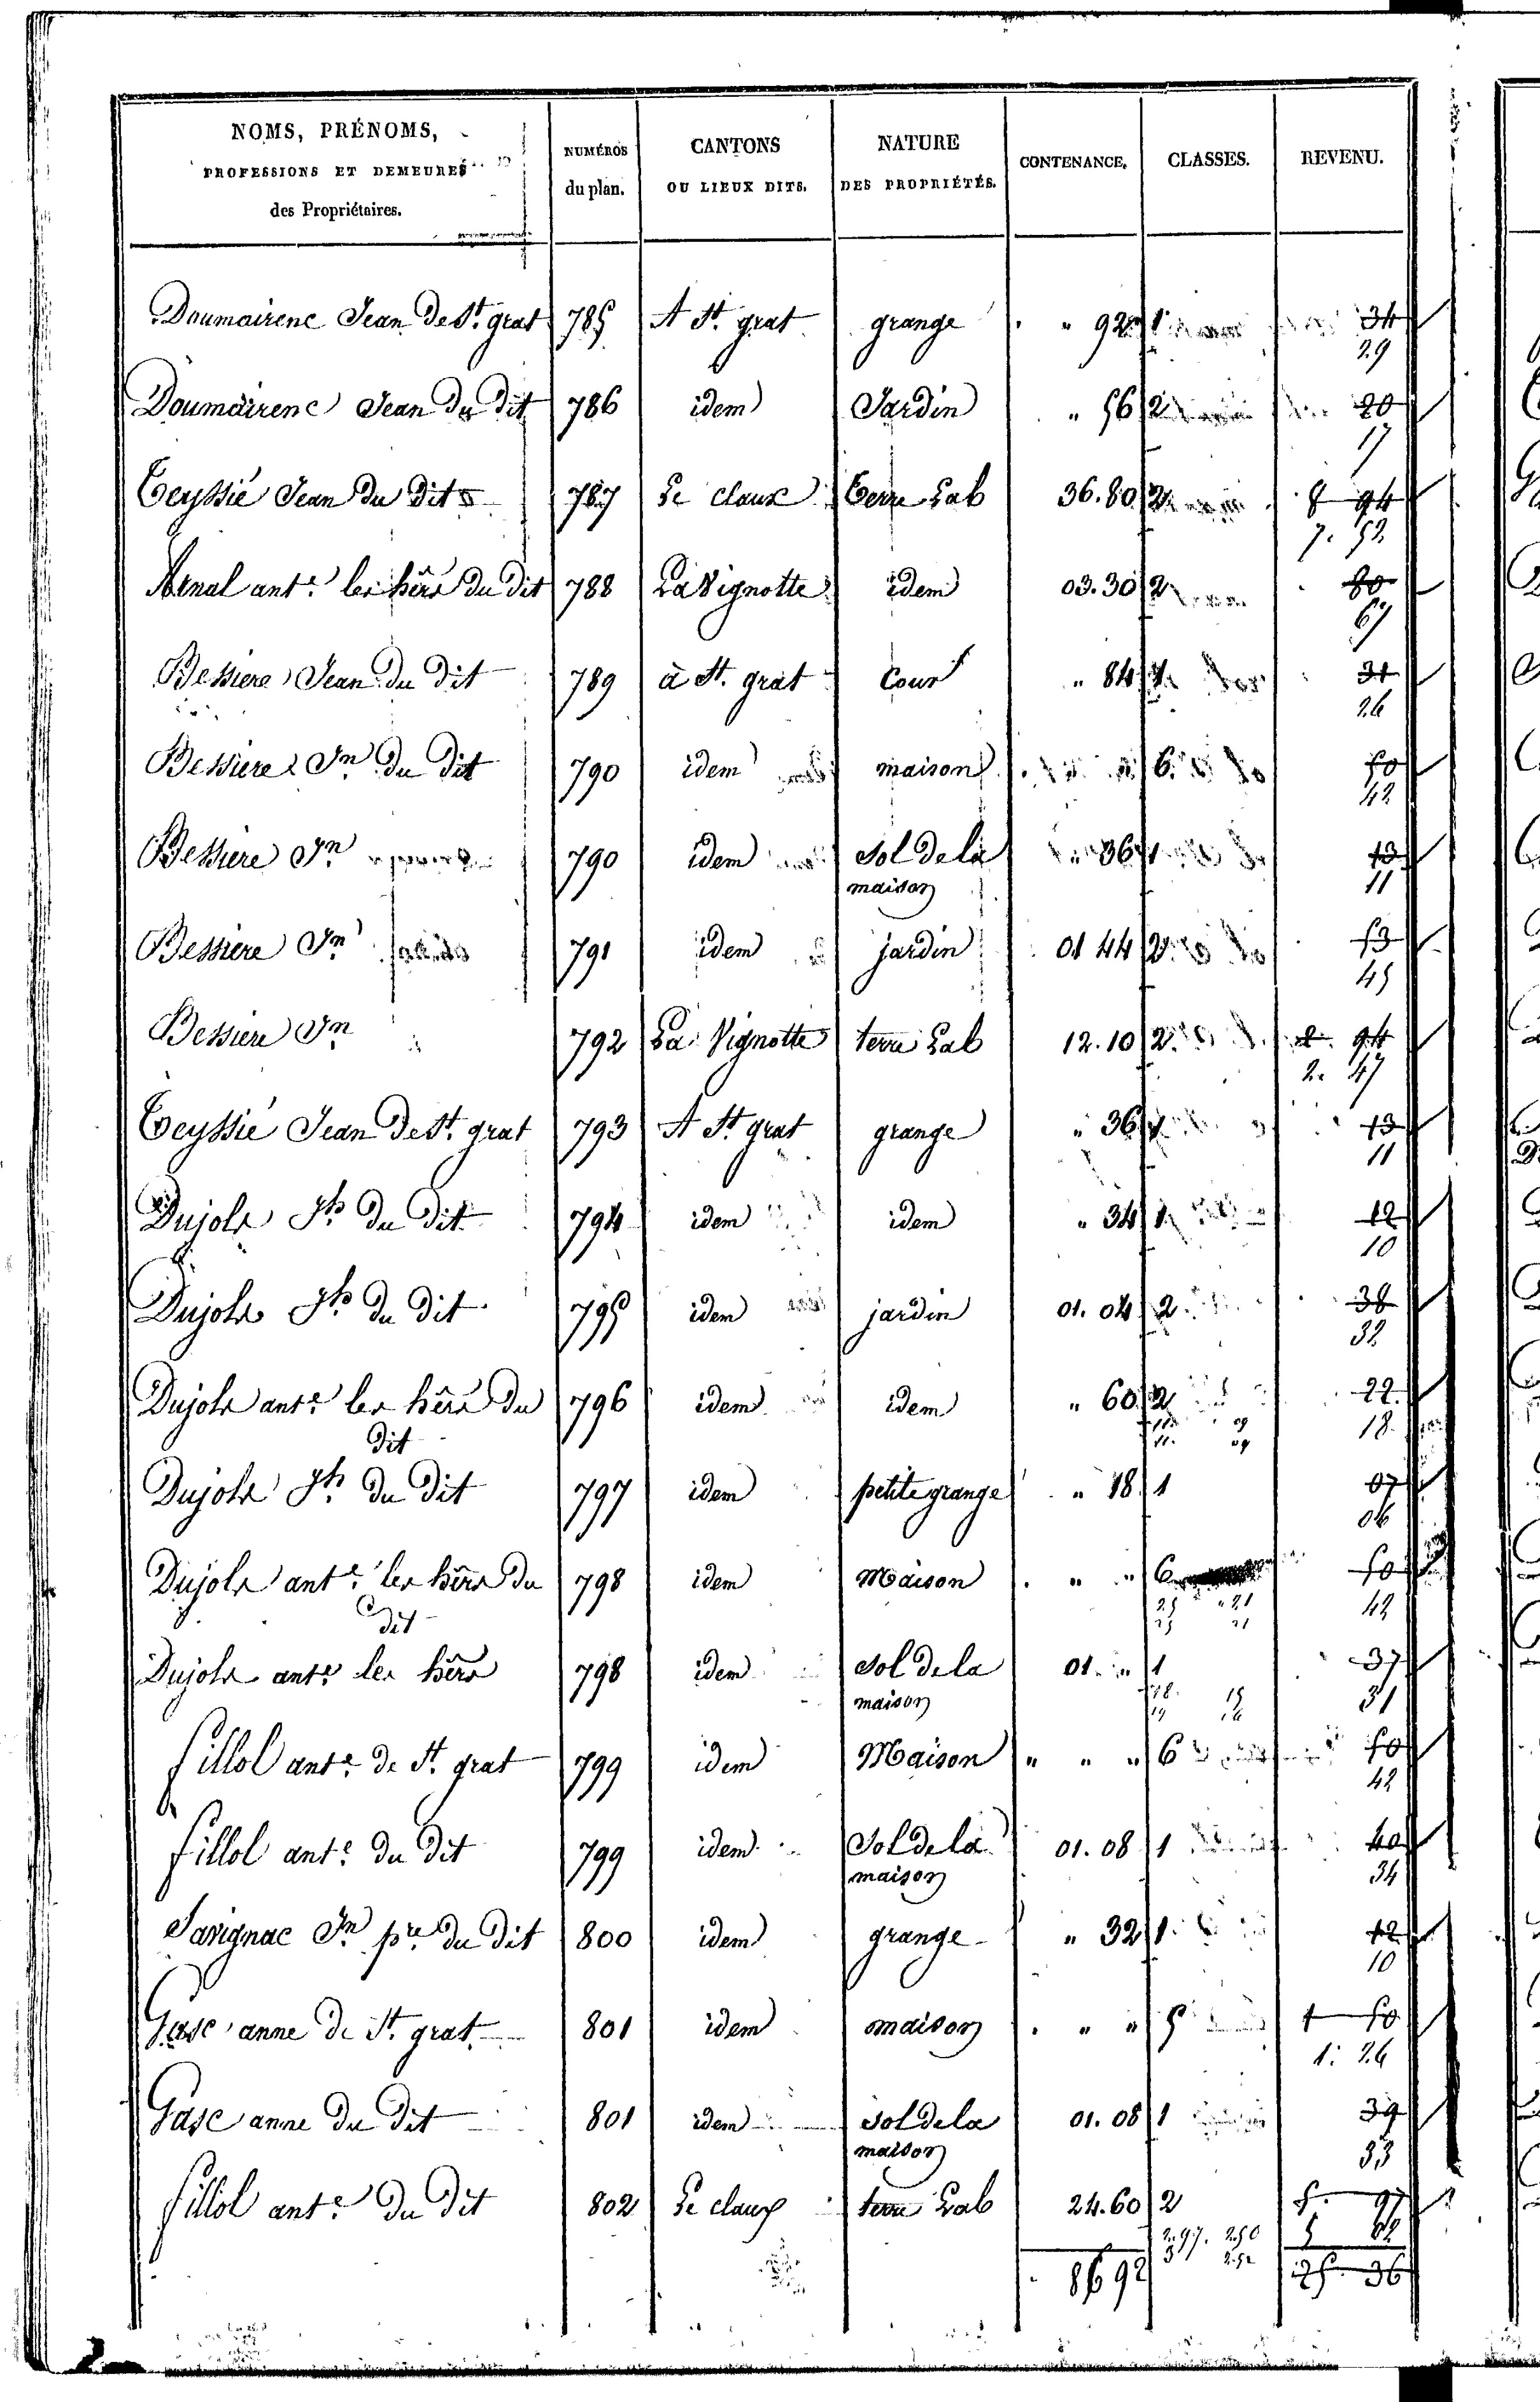 NOMS, PRÉNOMS, PROFESSIONS ET DEMEURES des Propriétaires. NUMÉROS du plan. CANTONS OU LIEUX DITS. NATURE DES PROPRIÉTÉS. CONTENANCE. CLASSES. REVENU.
Doumairenc Jean de St. grat 785 A St. grat grange " 92 1 34
29
Doumairenc Jean du dit 786 idem Jardin " 56 2 20
17
Teyssié Jean du dit 787 Le claux terre Lab 36.80 2 8 94
7. 52
Arnal ant.e les hêrs du dit 788 La Vignotte idem 03.30 2 80
67
Bessiere Jean du dit 789 à St. grat Cour " 84 1 31
26
Bessiere Jn du dit 790 idem maison 6 50
42
Bessiere Jn 790 idem Sol de la " 36 1 13
maison 11
Bessiere Jn 791 idem jardin 01 44 2 53
45
Bessiere Jn 792 La Vignotte terre Lab 12.10 2 2. 94
2. 47
Teyssié Jean de St. grat 793 A St. grat grange " 36 1 13
11
Dujols Jh. du dit 794 idem idem " 34 1 12
10
Dujols Jh. du dit 795 idem jardin 01.04 2 38
32
Dujols ant.e les hêrs du 796 idem idem " 60 2 22
dit 18
Dujols Jh. du dit 797 idem petite grange " 18 1 07
06
Dujols ant.e les hêrs du 798 idem Maison " " 6 50
dit 25 21 42
Dujols ant.e les hêrs 798 idem Sol de la 01. " 1 37
maison 31
fillol ant.e de St. grat 799 idem Maison " " " 6 50
42
fillol ant.e du dit 799 idem Sol de la 01.08 1 40
maison 34
Savignac Jn pre du dit 800 idem grange " 32 1 12
10
Gasc anne de St. grat 801 idem maison " " 5 1 50
1. 26
Gasc anne du dit 801 idem sol de la 01.08 1 39
maison 33
fillol ant.e du dit 802 Le claux terre Lab 24.60 2 5. 97
5 02
86 92 25 36